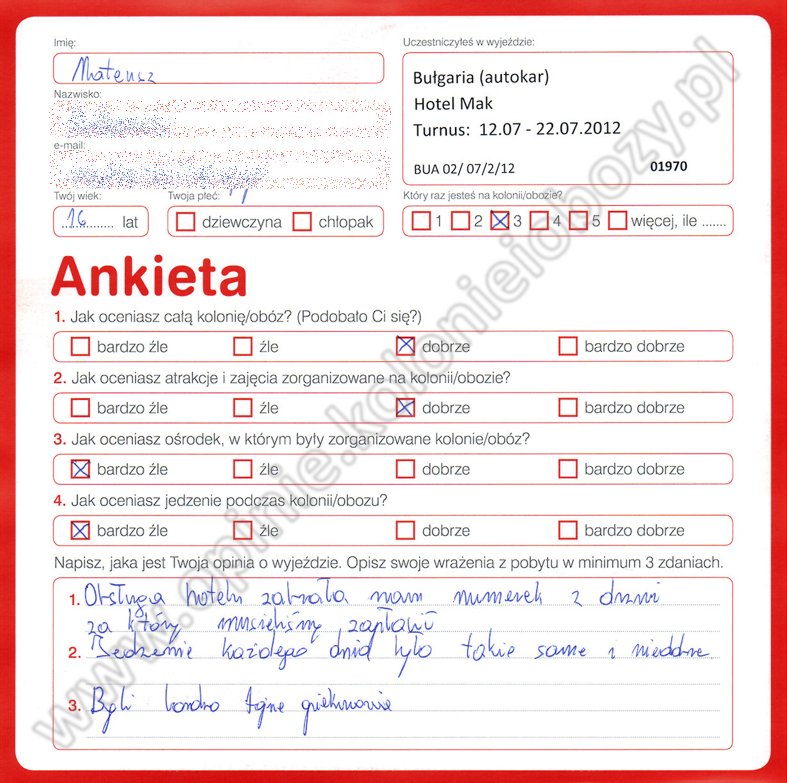 Imię:
Mateusz
Nazwisko:
e-mail:
Twój wiek:
16 lat
Twoja płeć:
dziewczyna chłopak
Uczestniczyłeś w wyjeździe:
Bułgaria (autokar)
Hotel Mak
Turnus: 12.07 - 22.07.2012
BUA 02/ 07/2/12 01970
Który raz jesteś na kolonii/obozie?
1 2 3 4 5 więcej, ile .......
Ankieta
1. Jak oceniasz całą kolonię/obóz? (Podobało Ci się?)
bardzo źle źle dobrze bardzo dobrze
2. Jak oceniasz atrakcje i zajęcia zorganizowane na kolonii/obozie?
bardzo źle źle dobrze bardzo dobrze
3. Jak oceniasz ośrodek, w którym były zorganizowane kolonie/obóz?
bardzo źle źle dobrze bardzo dobrze
4. Jak oceniasz jedzenie podczas kolonii/obozu?
bardzo źle źle dobrze bardzo dobrze
Napisz, jaka jest Twoja opinia o wyjeździe. Opisz swoje wrażenia z pobytu w minimum 3 zdaniach.
1. Obsługa hotelu zabrała nam numerek z drzwi
za który musieliśmy zapłacić
2. Jedzenie każdego dnia było takie same i niedobre
3. Byli bardzo fajne opiekunowie
www.opinie.kolonieiobozy.pl